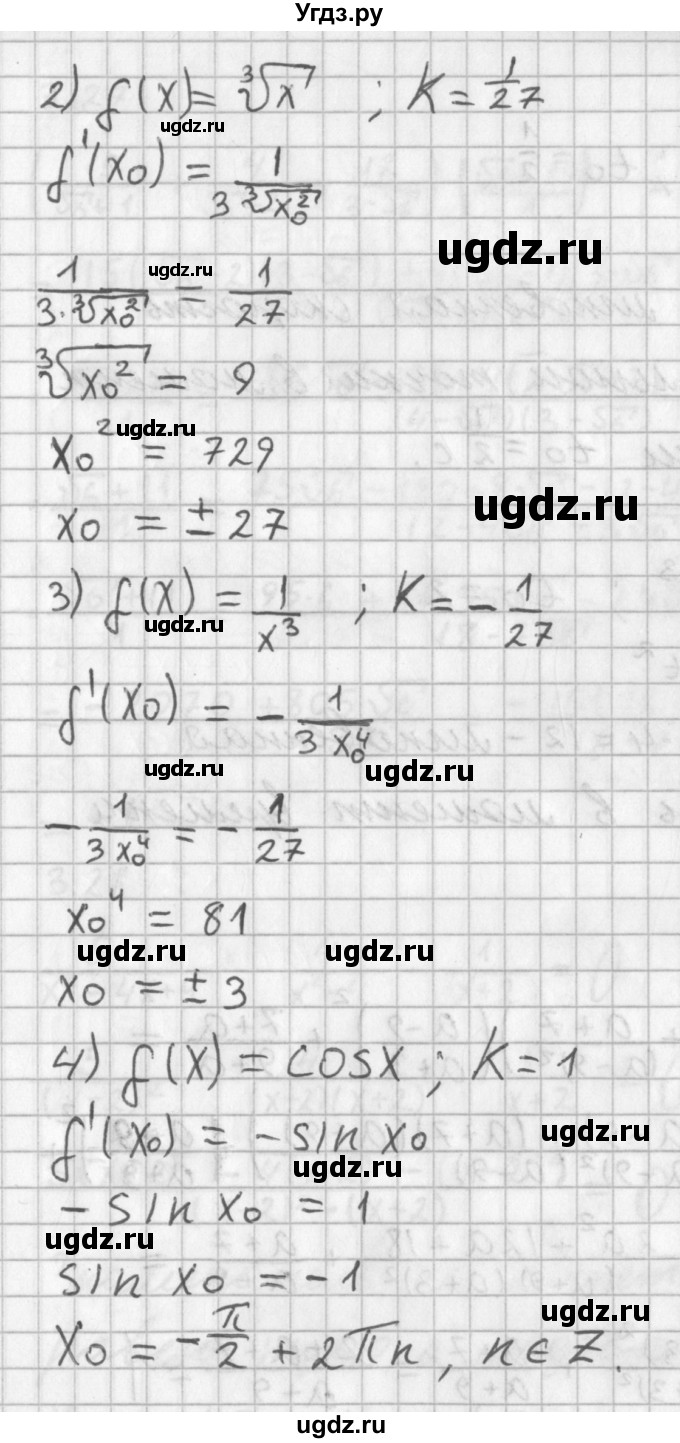 Угдз.ру
2) f(x) = ∛x ; K = 1/27
ugdz.ru
f'(x₀) = 1/(3∛x₀²)
ugdz.ru
ugdz.ru
1/(3·∛x₀²) = 1/27
∛x₀² = 9
ugdz.ru
x₀² = 729
ugdz.ru
x₀ = ± 27
3) f(x) = 1/x³ ; K = -1/27
ugdz.ru
f'(x₀) = -1/(3x₀⁴)
ugdz.ru
ugdz.ru
-1/(3x₀⁴) = -1/27
x₀⁴ = 81
ugdz.ru ugdz.ru
x₀ = ± 3
4) f(x) = cosx ; K = 1
f'(x₀) = -sin x₀
ugdz.ru
ugdz.ru
-sin x₀ = 1
ugdz.ru
sin x₀ = -1
ugdz.ru
x₀ = -π/2 + 2πn, n∈Z.
ugdz.ru